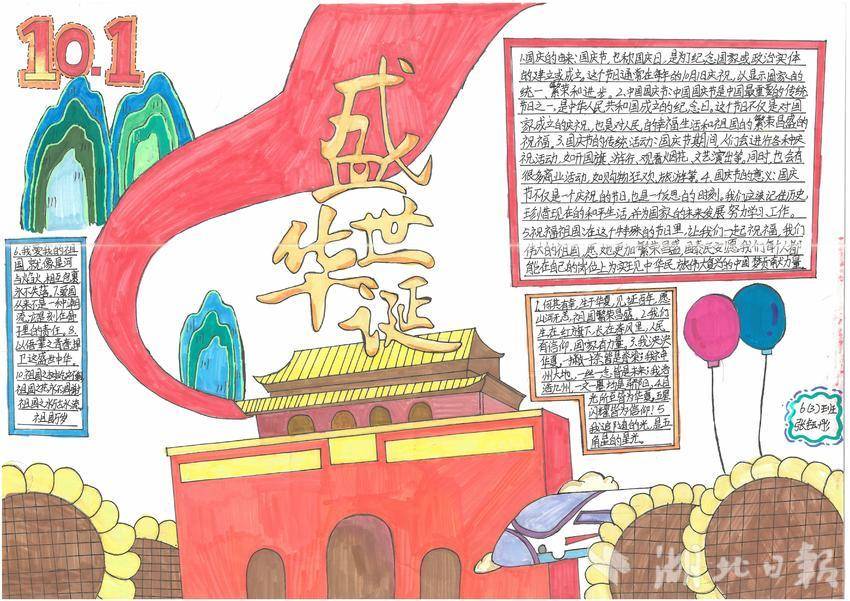 10.1
盛世华诞
1.国庆的由来:国庆节,也称国庆日,是为了纪念国家或政治实体
的建立或成立。这个节日通常在每年的10月1日庆祝,以显示国家的
统一、繁荣和进步。2.中国国庆节:中国国庆节是中国最重要的传统
节日之一,是中华人民共和国成立的纪念日。这个节日不仅是对国
家成立的庆祝,也是对人民幸福生活和祖国的繁荣昌盛的
祝福。3.国庆节的传统活动:国庆节期间,人们会进行各种庆
祝活动,如升国旗、游行、观看烟花、文艺演出等,同时,也会有
很多商业活动,如购物狂欢、旅游等。4.国庆节的意义:国庆
节不仅是一个庆祝的节日,也是一个反思的时刻。我们应该记住历史,
珍惜现在的和平生活,并为国家的未来发展努力学习工作。
5.祝福祖国:在这个特殊的节日里,让我们一起祝福我们
伟大的祖国,愿她更加繁荣昌盛
能在自己的岗位上为实现中华民族伟大复兴的中国梦贡献力量。
6.我爱我的祖
国,就像星河
与炽火,相互包裹
永不失落。7.爱国
从来不是一种潮
流,而是刻在骨
子里的责任。8.
以吾辈之青春,捍
卫这盛世中华。
1.何其有幸,生于华夏,见证百年,愿
山河无恙,祖国繁荣昌盛。2.我们
生在红旗下,长在春风里,人民
有信仰,国家有力量。3.我泱泱
华夏,一撇一捺皆是脊梁;我神
州大地,一丝一念皆是未来;我浩
浩九州,一文一墨均是骄阳。4.目
光所至皆为华夏,五星
闪耀皆为信仰!5.
我追随的光,是五
角星的星光。
6(3)班
湖北日報